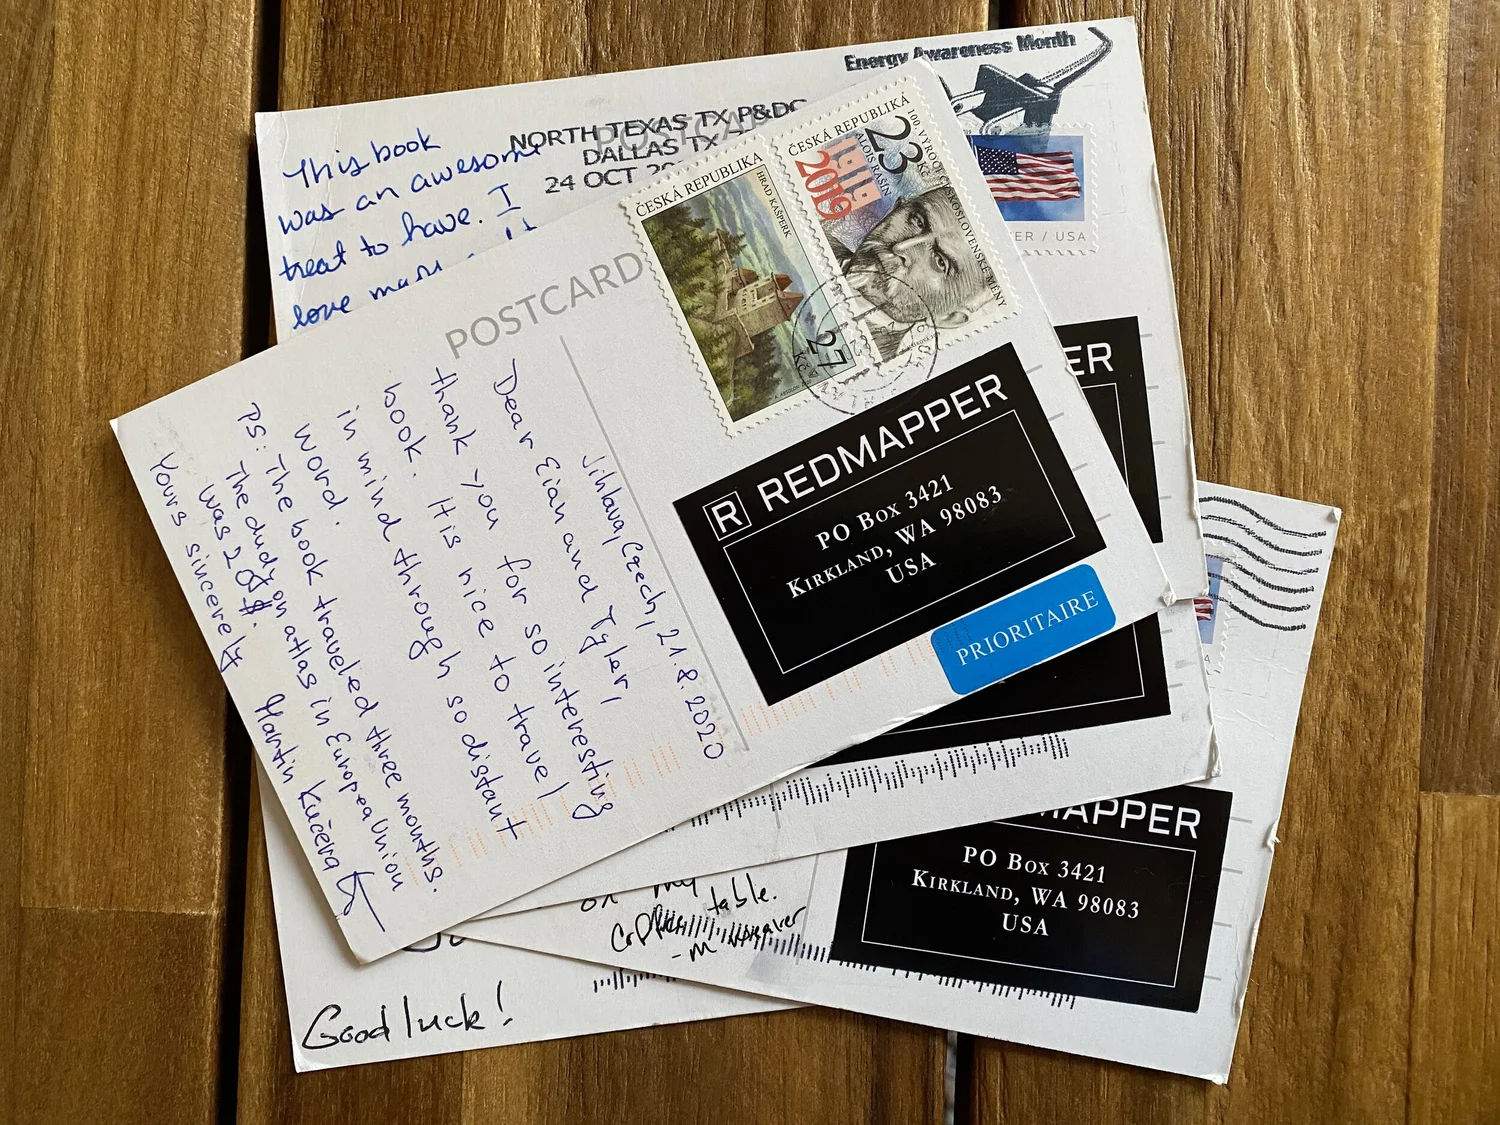 Energy Awareness Month
NORTH TEXAS TX P&DC
DALLAS TX
24 OCT 20
This book
was an awesome
treat to have. I
love
ER / USA
POSTCARD
ČESKÁ REPUBLIKA
HRAD KAŠPERK
27
Kč
ČESKÁ REPUBLIKA
23
Kč
1919
2019
ALOIS RAŠÍN
100. VÝROČÍ ČESKOSLOVENSKÉ MĚNY
Jihlava, Czech, 21.8.2020
Dear Eian and Tyler,
thank you for so interesting
book. His nice to travel
in mind through so distant
word.
PS: The book traveled three months.
The duty on atlas in European Union
was 28$.
Yours sincerely Martin Kučera
R REDMAPPER
PO Box 3421
Kirkland, WA 98083
USA
PRIORITAIRE
ER
MAPPER
PO Box 3421
Kirkland, WA 98083
USA
on my
table.
Good luck!